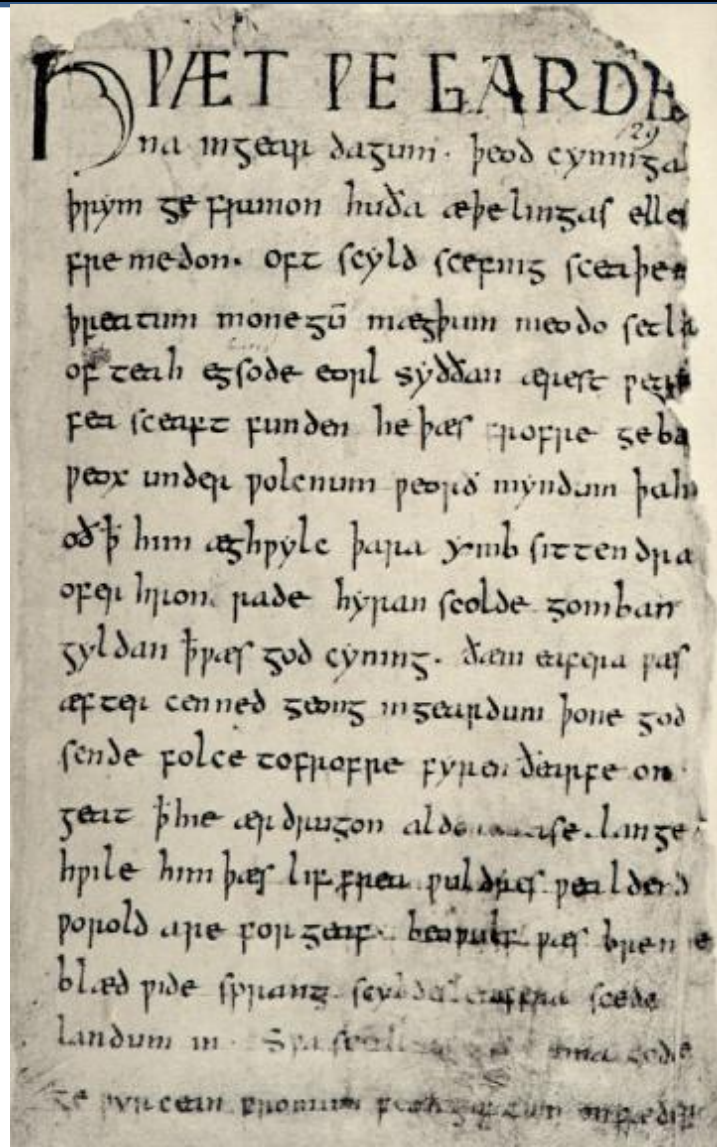 HǷÆT ǷE GARDE
129
na in gear dagum. þeod cyninga
þrym ge frunon huða æþelingas ellen
fre medon. oft scyld scefing sceaþen
þreatum monegū mægþum meodo setla
of teah egsode eorl syððan ærest ƿearð
fea sceaft funden he þæs frofre geba
ƿeox under ƿolcnum ƿeorð myndum þah
oð ꝥ him æghƿylc þara ymb sittendra
ofer hron rade hyran scolde gomban
gyldan ꝥ ƿæs god cyning. ðæm eafera ƿæs
æfter cenned geong in geardum þone god
sende folce tofrofre fyren ðearfe on
geat ꝥ hie ær drugon lange
hƿile him þæs lif frea ƿuldres ƿealdend
ƿorold are for geaf. beoƿulf ƿæs breme
blæd ƿide sprang scyldes eafera scede
landum in. Sƿa gode
ge ƿyrcean fromum feoh giftum